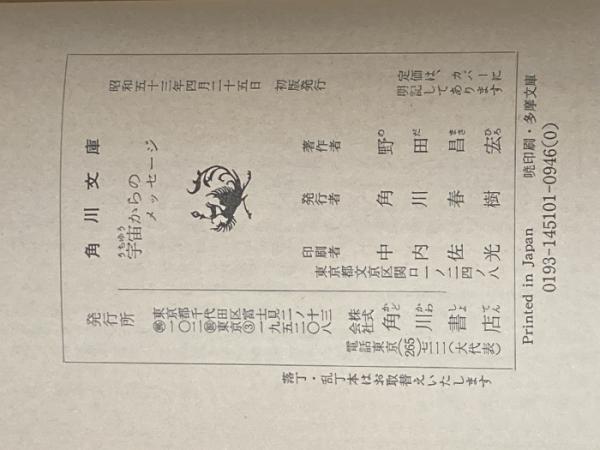 角川文庫
うちゅう
宇宙からの
メッセージ
昭和五十三年四月二十五日 初版発行
定価は、カバーに
明記してあります
著作者 野田昌宏
のだまさひろ
発行者 角川春樹
印刷者 中内佐光
東京都文京区関口一ノ二四ノ八
発行所
東京都千代田区富士見二ノ十三
〒一〇二 振東京③一九五二〇八
株式会社 角川書店
かどかわしょてん
電話東京(265)七一一一(大代表)
落丁・乱丁本はお取替えいたします
Printed in Japan 暁印刷・多摩文庫
0193-145101-0946(0)